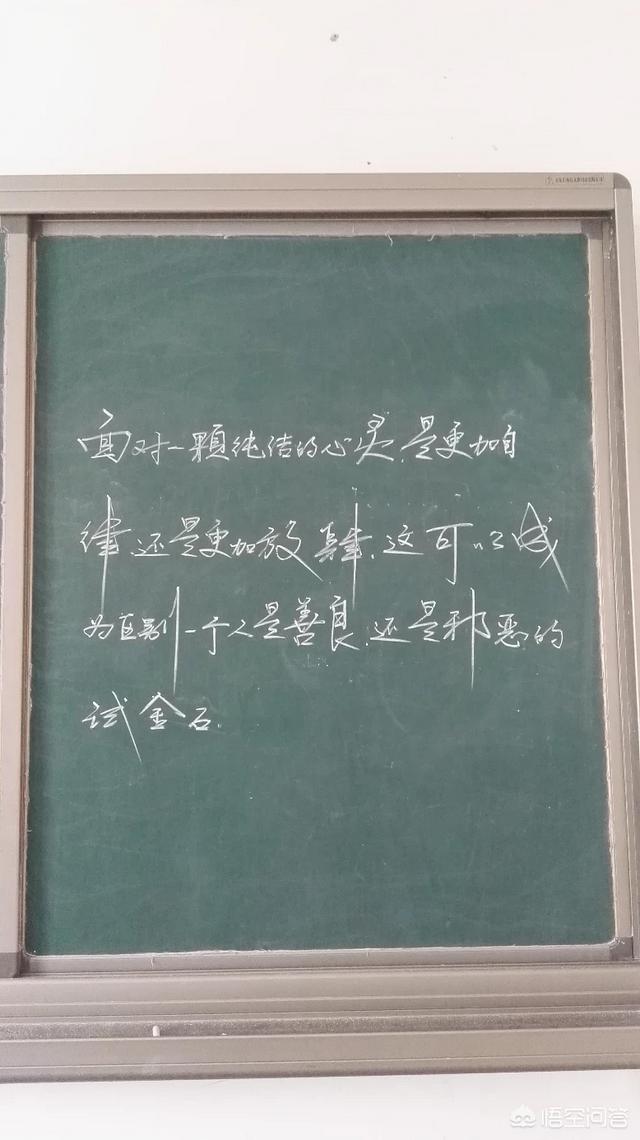 面对一颗纯洁的心灵,是更加自
律,还是更加放肆,这可以成
为区别一个人是善良,还是邪恶的
试金石.
悟空问答